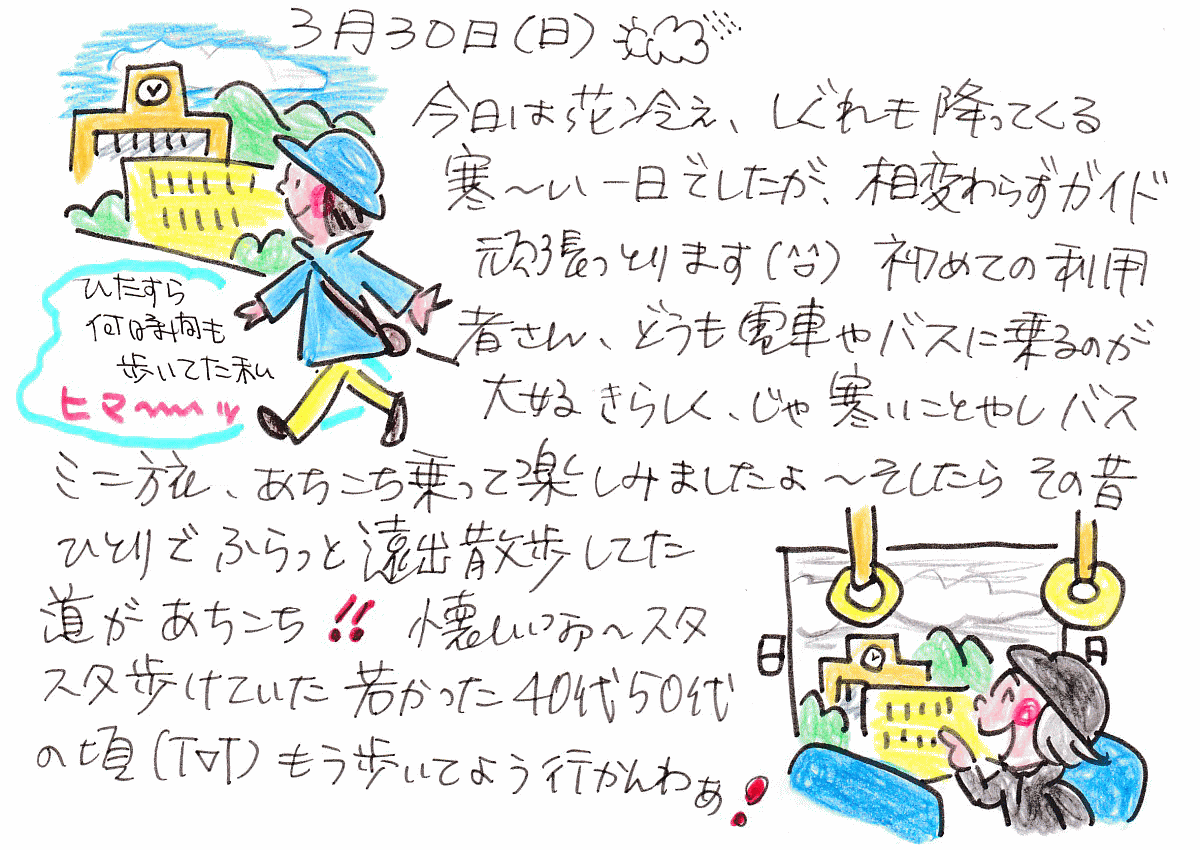 3月30日(日)
今日は花冷え、しぐれも降ってくる
寒〜い一日でしたが、相変わらずガイド
頑張っとります(^^)初めての利用
者さん、どうも電車やバスに乗るのが
大好きらしく、じゃ寒いことやしバス
ミニ旅、あちこち乗って楽しみましたよ〜そしたらその昔
ひとりでふらっと遠出散歩してた
道があちこち!!懐しいなァ〜スタ
スタ歩けていた若かった40代50代
の頃(T▽T)もう歩いてよう行かんわぁ!
ひたすら
何時間も
歩いてた私
ヒマ〜〜〜ッ